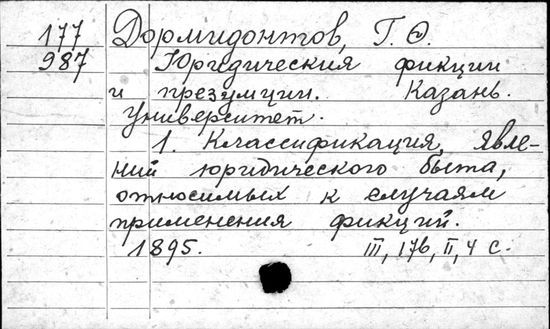 177 Дормидонтов, Г. Ѳ.
987 Юридическия фикции
и презумции. Казань.
Университет.
1. Классификация, явле-
ний юридического быта,
относимых к случаям
применения фикций.
1895. III, 176, II, 4 с.